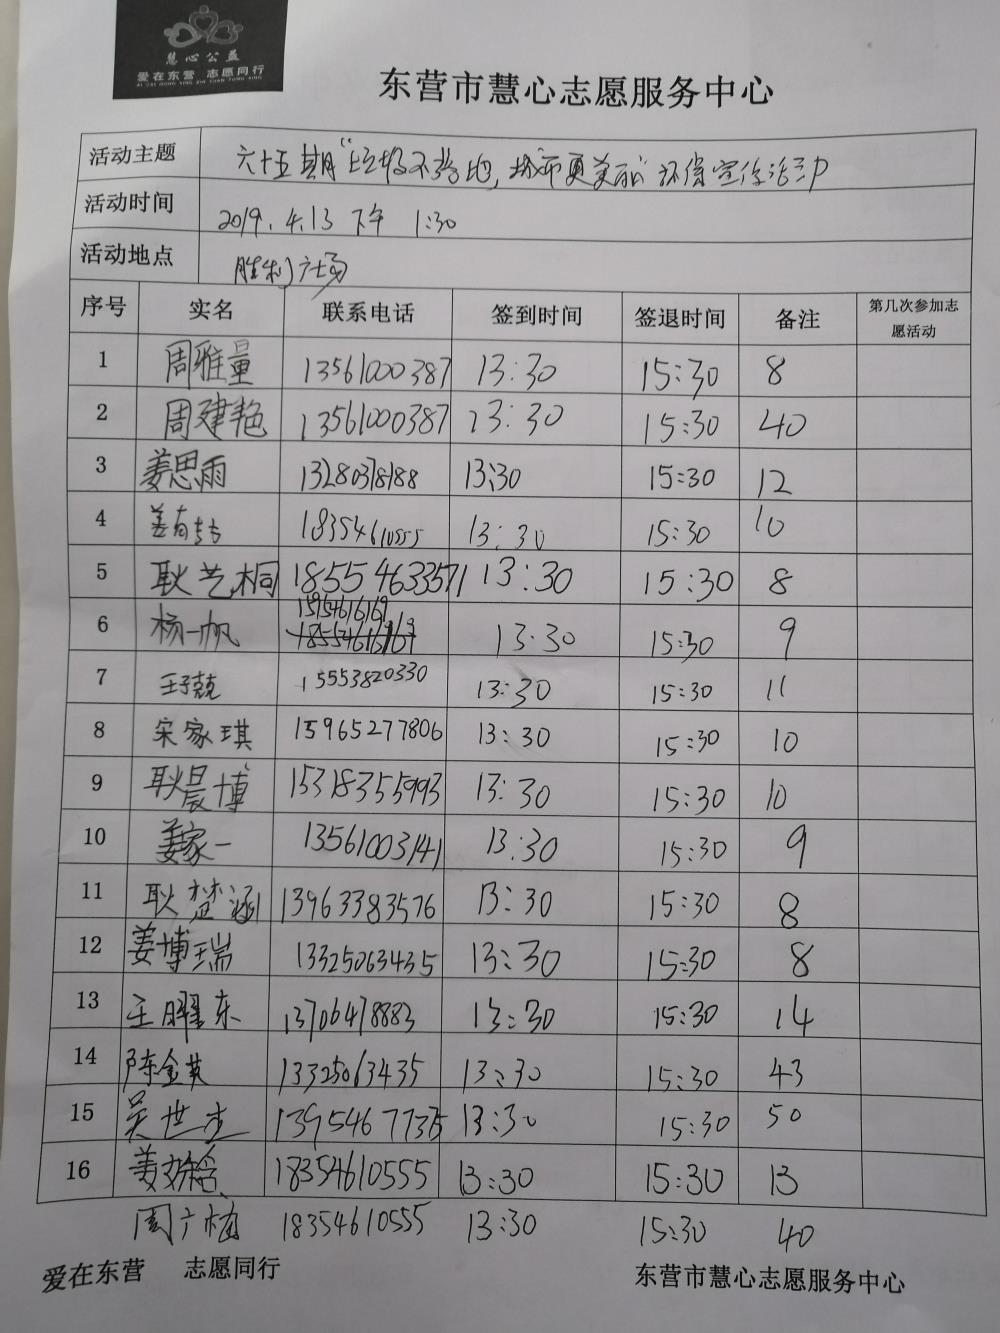 慧心公益
爱在东营 志愿同行
AI ZAI DONG YING ZHI YUAN TONG XING
东营市慧心志愿服务中心
活动主题 六十五期"垃圾不落地,城市更美丽"环保宣传活动
活动时间 2019.4.13 下午 1:30
活动地点 胜利广场
序号 实名 联系电话 签到时间 签退时间 备注 第几次参加志愿活动
1 周雅量 13561000387 13:30 15:30 8
2 周建艳 13561000387 13:30 15:30 40
3 姜思雨 13280378188 13:30 15:30 12
4 姜 18354610555 13:30 15:30 10
5 耿艺桐 18554633571 13:30 15:30 8
6 杨一帆 15954616169 13:30 15:30 9
7 王子兢 15553820330 13:30 15:30 11
8 宋家琪 15965277806 13:30 15:30 10
9 耿晨博 15318355993 13:30 15:30 10
10 姜家一 13561003141 13:30 15:30 9
11 耿楚涵 13963383576 13:30 15:30 8
12 姜博瑞 13325063435 13:30 15:30 8
13 王耀东 13706478883 13:30 15:30 14
14 陈金英 13325063435 13:30 15:30 43
15 吴世杰 13:30 15:30 50
16 姜 18354610555 13:30 15:30 13
周广梅 18354610555 13:30 15:30 40
爱在东营 志愿同行 东营市慧心志愿服务中心